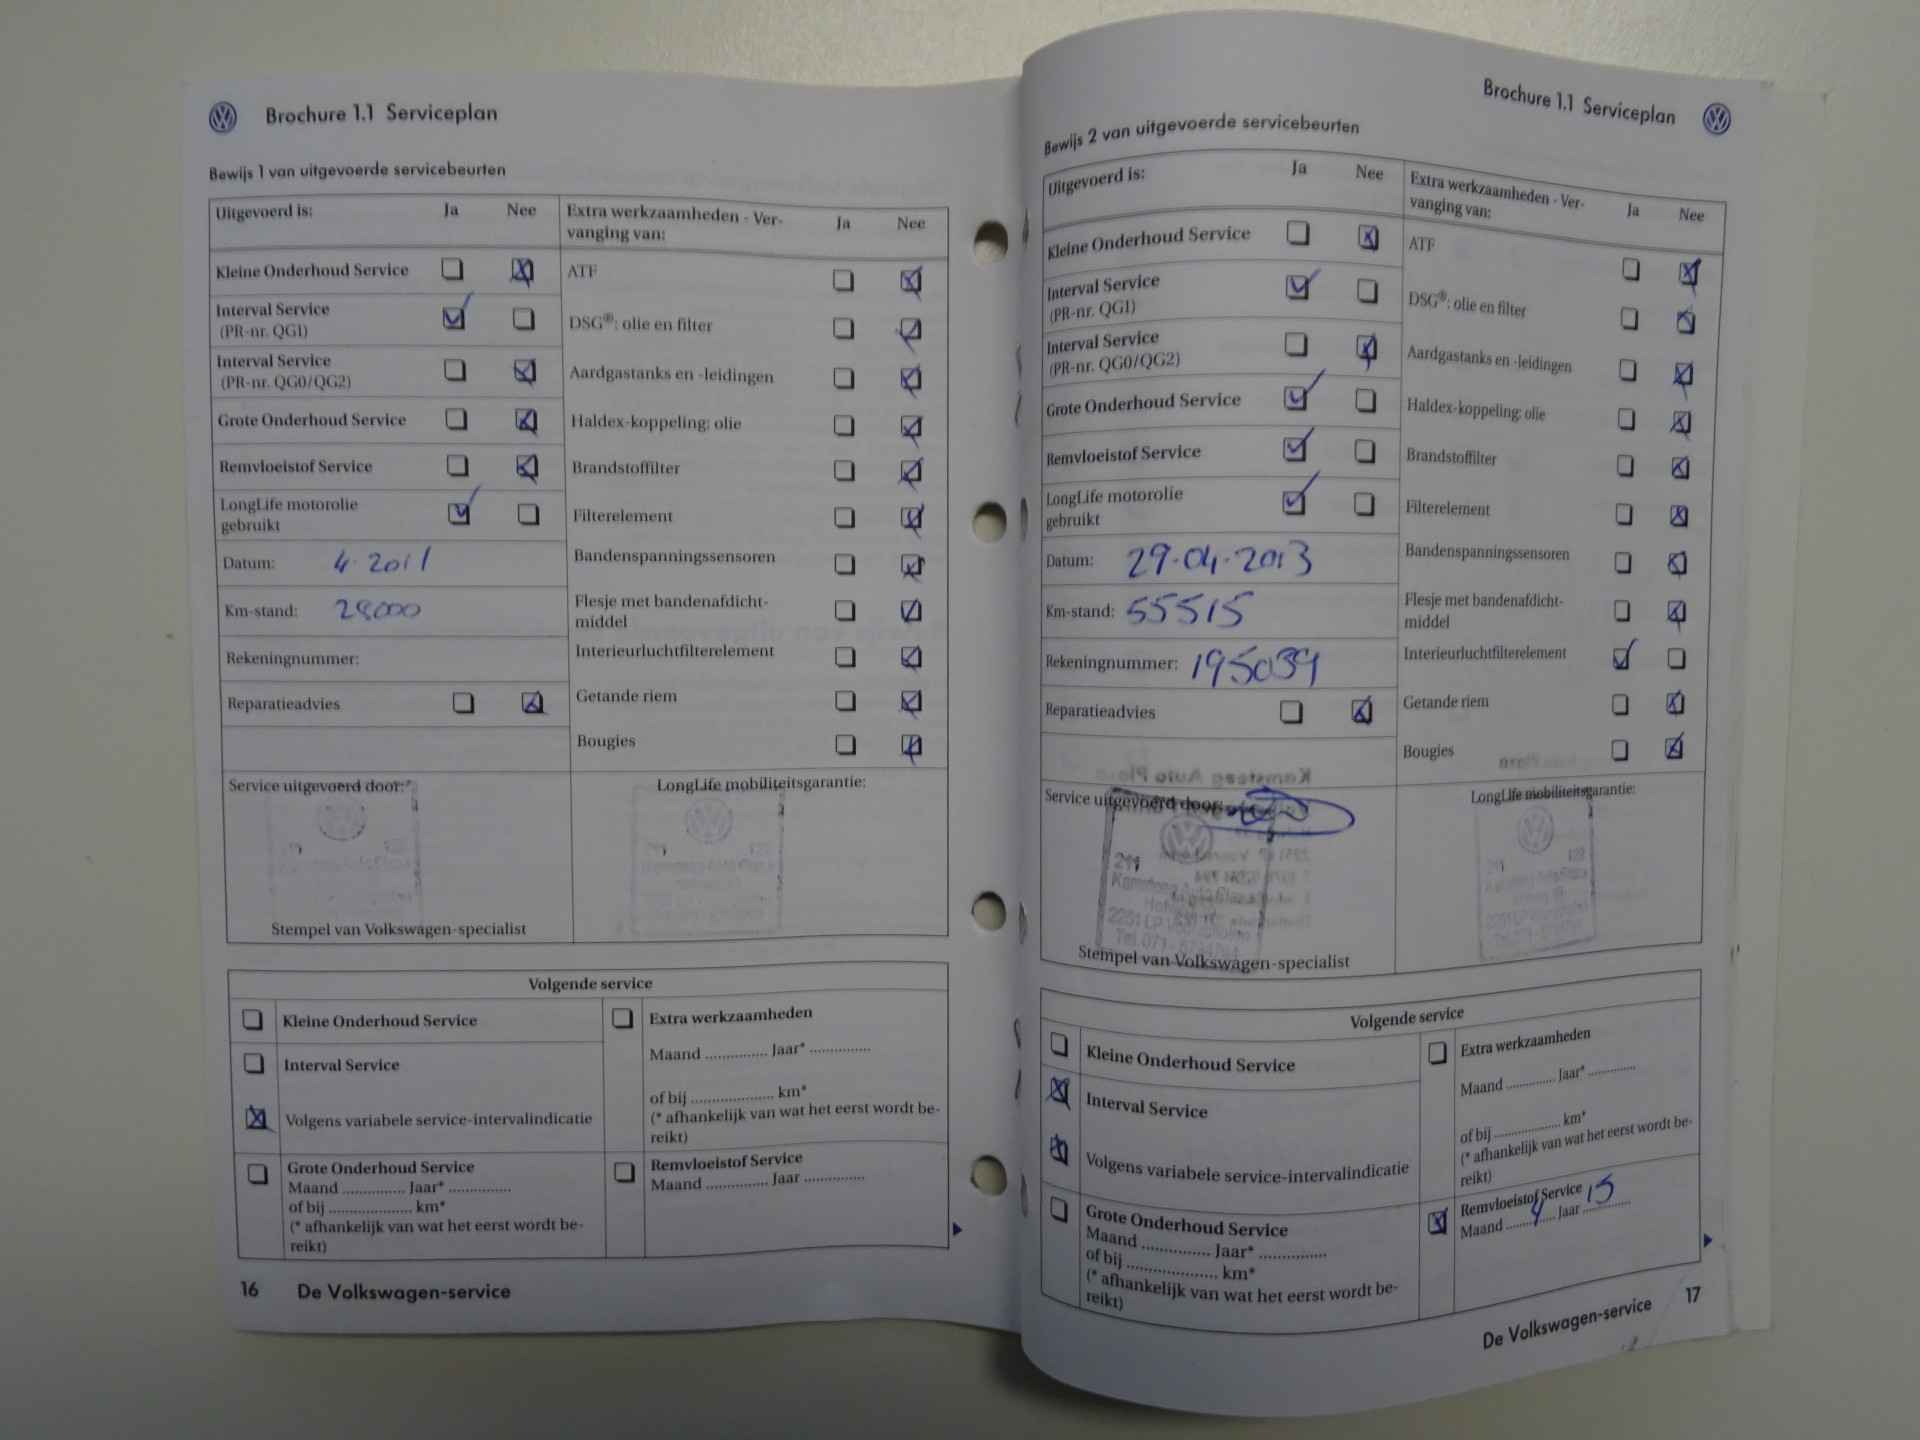 Brochure 1.1 Serviceplan
Bewijs 1 van uitgevoerde servicebeurten
Uitgevoerd is: Ja Nee
Kleine Onderhoud Service
Interval Service
(PR-nr. QG1)
Interval Service
(PR-nr. QG0/QG2)
Grote Onderhoud Service
Remvloeistof Service
LongLife motorolie
gebruikt
Datum: 4-2011
Km-stand: 28000
Rekeningnummer:
Reparatieadvies
Extra werkzaamheden - Ver-
vanging van: Ja Nee
ATF
DSG®: olie en filter
Aardgastanks en -leidingen
Haldex-koppeling: olie
Brandstoffilter
Filterelement
Bandenspanningssensoren
Flesje met bandenafdicht-
middel
Interieurluchtfilterelement
Getande riem
Bougies
Service uitgevoerd door:*
Stempel van Volkswagen-specialist
LongLife mobiliteitsgarantie:
Volgende service
Kleine Onderhoud Service
Interval Service
Volgens variabele service-intervalindicatie
Grote Onderhoud Service
Maand ............... Jaar* ...............
of bij .................... km*
(* afhankelijk van wat het eerst wordt be-
reikt)
Extra werkzaamheden
Maand ............... Jaar* ...............
of bij .................... km*
(* afhankelijk van wat het eerst wordt be-
reikt)
Remvloeistof Service
Maand ............... Jaar ...............
16 De Volkswagen-service
Brochure 1.1 Serviceplan
Bewijs 2 van uitgevoerde servicebeurten
Uitgevoerd is: Ja Nee
Kleine Onderhoud Service
Interval Service
(PR-nr. QG1)
Interval Service
(PR-nr. QG0/QG2)
Grote Onderhoud Service
Remvloeistof Service
LongLife motorolie
gebruikt
Datum: 29-04-2013
Km-stand: 55515
Rekeningnummer: 195039
Reparatieadvies
Extra werkzaamheden - Ver-
vanging van: Ja Nee
ATF
DSG®: olie en filter
Aardgastanks en -leidingen
Haldex-koppeling: olie
Brandstoffilter
Filterelement
Bandenspanningssensoren
Flesje met bandenafdicht-
middel
Interieurluchtfilterelement
Getande riem
Bougies
Service uitgevoerd door:
Kamsteeg Auto
2251 LP
Tel. 071 -
Stempel van Volkswagen-specialist
LongLife mobiliteitsgarantie:
Volgende service
Kleine Onderhoud Service
Interval Service
Volgens variabele service-intervalindicatie
Grote Onderhoud Service
Maand ............... Jaar* ...............
of bij .................... km*
(* afhankelijk van wat het eerst wordt be-
reikt)
Extra werkzaamheden
Maand ............... Jaar* ...............
of bij .................... km*
(* afhankelijk van wat het eerst wordt be-
reikt)
Remvloeistof Service
Maand 4 Jaar 15
De Volkswagen-service 17